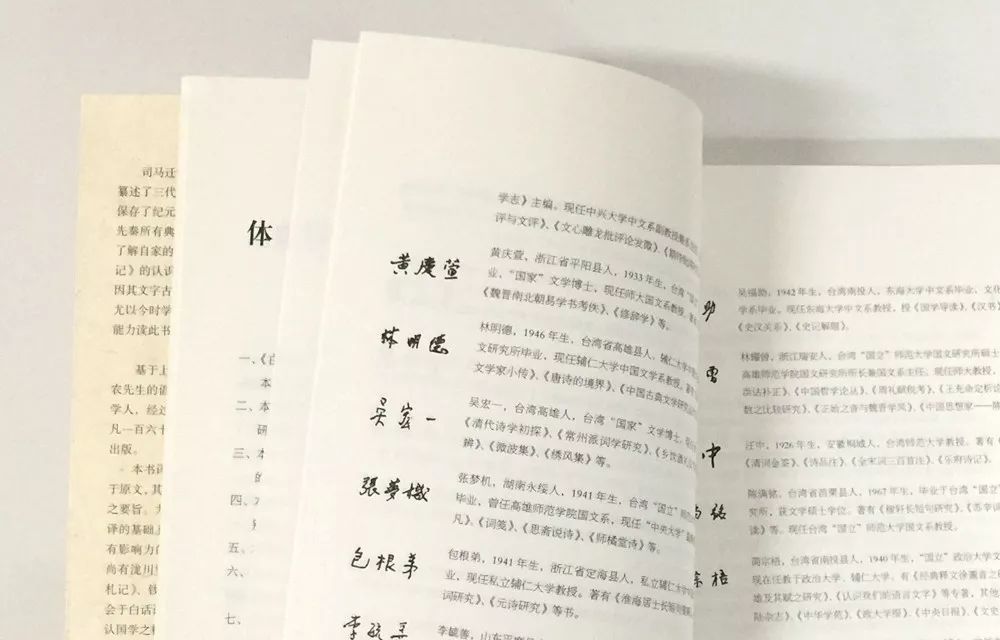 司马迁
纂述了三代
保存了纪元
先秦所有典
了解自家的
记》的认识
因其文字古
尤以今时学
能力读此书
基于上
农先生的
学人，经过
凡一百六十
出版。
本书译
于原文，其
之要旨。
译的基础上
有影响力的
尚有泷川
札记》、
会于白话
认国学之
体
一、《白
本
二、本
研
三、本
的
四、
五、
六、
七、
学志》主编。现任中兴大学中文系副教授兼系
评与文评》、《文心雕龙批评论发微》
黄慶萱
黄庆萱，浙江省平阳县人，1933年生，台湾“国
业，“国家”文学博士，现任师大国文系教授。著有
《魏晋南北朝易学书考佚》、《修辞学》等。
林明德
林明德，1946年生，台湾省高雄县人，辅仁大学中
文研究所毕业，现任辅仁大学中国文学系教授。著有
文学家小传》、《唐诗的境界》、《中国古典文学研究
吴宏一
吴宏一，台湾高雄人，台湾“国家”文学博士，
《清代诗学初探》、《常州派词学研究》、《乡饮酒礼
辨》、《微波集》、《绣风集》等。
張夢機
张梦机，湖南永绥人，1941年生，台湾“国立”师
毕业，曾任高雄师范学院国文系，现任“中央大学”
凡》、《词笺》、《思斋说诗》、《师橘堂诗》等。
包根弟
包根弟，1941年生，浙江省定海县人，私立辅仁大学
业，现任私立辅仁大学教授。著有《淮海居士长短句
词研究》、《元诗研究》等书。
李毓善
李毓善，山东平度
助
吴福助，1942年生，台湾南投人，东海大学中文系毕业，文化
学系毕业，现任东海大学中文系教授，授《国学导读》、《汉书》
《史汉关系》、《史记解题》。
曾
林耀曾，浙江瑞安人，台湾“国立”师范大学国文研究所硕士
高雄师范学院国文研究所所长兼国文系主任。现任师大教授。
补正》、《中国哲学论丛》、《周礼赋税考》、《王充命定析论
数之比较研究》、《正始之音与魏晋学风》、《中国思想家——陈
中
汪中，1926年生，安徽桐城人，台湾师范大学教授。著有《
《清词金荃》、《诗品注》、《全宋词三百首注》、《乐府诗记》
铭
陈满铭，台湾省苗栗县人，1967年生，毕业于台湾“国立”
究所，获文学硕士学位。著有《稼轩长短句研究》、《苏辛词
读》等。现任台湾“国立”师范大学国文系教授。
宗梧
简宗梧，台湾省南投县人，1940年生，“国立”政治大学文
现在任教于政治大学、辅仁大学，有《经典释文徐邈音之研
雄及其赋之研究》、《认识我们的语言文字》等专著，其他
陆杂志》、《中华学苑》、《政大学报》、《中央日报》、《文史